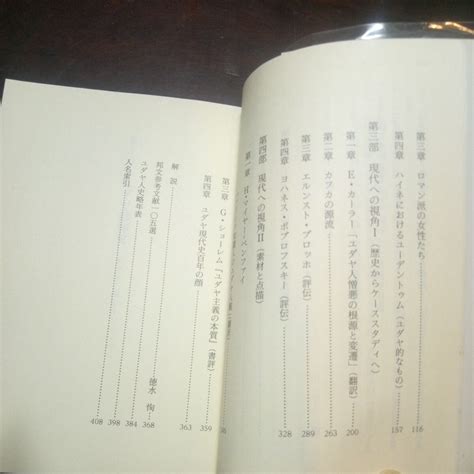 第三章 ロマン派の女性たち 116
第四章 ハイネにおけるユーデントゥム（ユダヤ的なもの） 157
第三部 現代への視角Ⅰ（歴史からケーススタディへ）
第一章 E・カーラー「ユダヤ人憎悪の根源と変遷」（翻訳） 200
第二章 カフカの源流 263
第三章 エルンスト・ブロッホ（評伝） 289
第四章 ヨハネス・ボブロフスキー（評伝） 328
第四部 現代への視角Ⅱ（素材と点描）
第一章 H・マイヤー＝ベンファイ
第三章 G・ショーレム『ユダヤ主義の本質』（書評） 359
第四章 ユダヤ現代史百年の顔 363
解説 徳永 恂 368
邦文参考文献一〇五選 384
ユダヤ人史略年表 398
人名索引 408